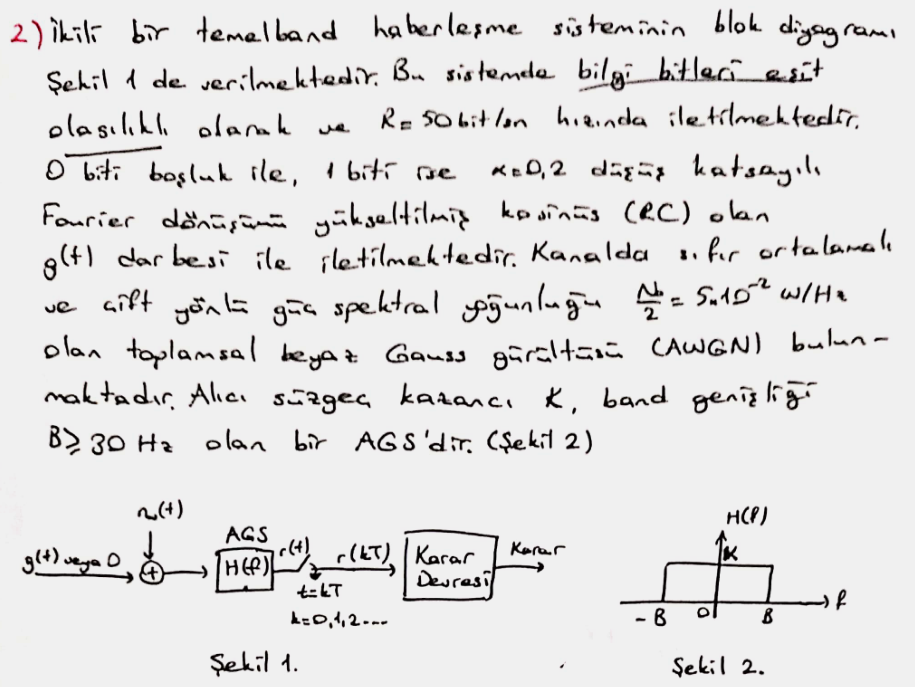 2) İkili bir temelband haberleşme sisteminin blok diyagramı
Şekil 1 de verilmektedir. Bu sistemde bilgi bitleri eşit
olasılıklı olarak ve R=50bit/sn hızında iletilmektedir.
0 biti boşluk ile, 1 biti ise α=0,2 düşüş katsayılı
Fourier dönüşümü yükseltilmiş kosinüs (RC) olan
g(t) darbesi ile iletilmektedir. Kanalda sıfır ortalamalı
ve çift yönlü güç spektral yoğunluğu N₀/2 = 5x10⁻² W/Hz
olan toplamsal beyaz Gauss gürültüsü (AWGN) bulun-
maktadır. Alıcı süzgeç kazancı K, band genişliği
B≥30 Hz olan bir AGS'dir. (Şekil 2)
n(t)
g(t) veya 0
+
AGS
H(f)
r(t)
t=kT
k=0,1,2...
r(kT)
Karar
Devresi
Karar
Şekil 1.
H(f)
K
-B 0 B f
Şekil 2.